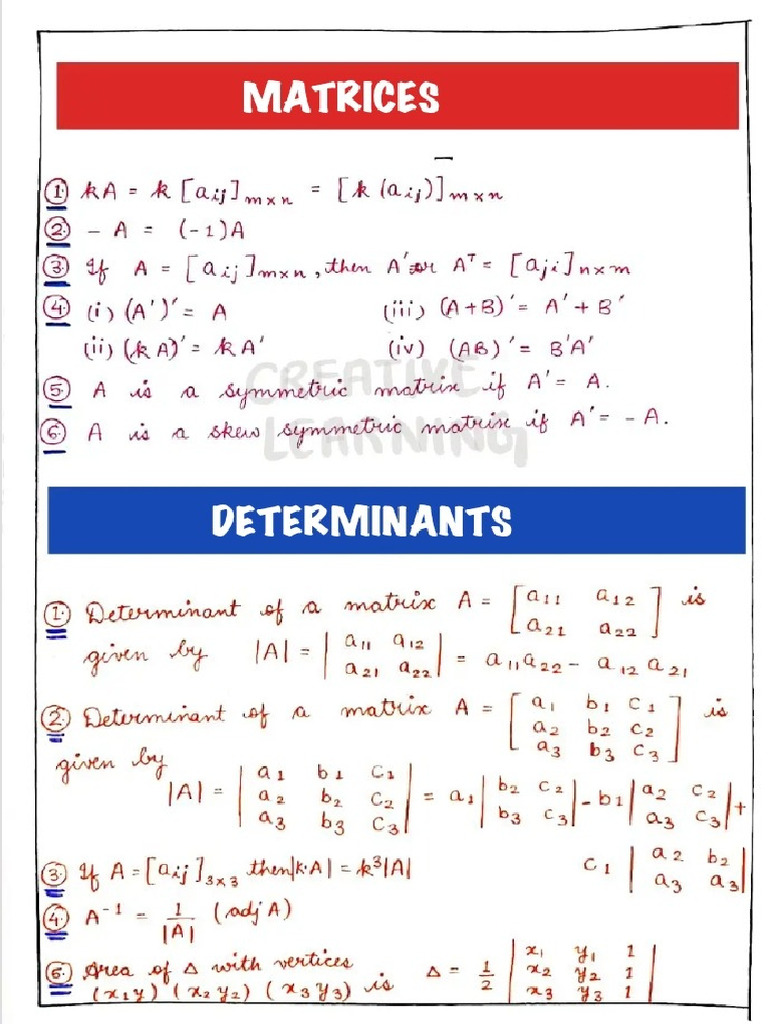 MATRICES
① kA = k [aij] m×n = [k (aij)] m×n
② - A = (-1)A
③ If A = [aij] m×n, then A' or Aᵀ = [aji] n×m
④ (i) (A')' = A (iii) (A+B)' = A' + B'
(ii) (kA)' = kA' (iv) (AB)' = B'A'
CREATIVE
⑤ A is a symmetric matrix if A' = A.
⑥ A is a skew symmetric matrix if A' = - A.
LEARNING
DETERMINANTS
① Determinant of a matrix A = [a11 a12
a21 a22] is
given by |A| = |a11 a12
a21 a22| = a11a22 - a12 a21
② Determinant of a matrix A = [a1 b1 c1
a2 b2 c2
a3 b3 c3] is
given by
|A| = |a1 b1 c1
a2 b2 c2
a3 b3 c3| = a1 |b2 c2
b3 c3| - b1 |a2 c2
a3 c3| +
c1 |a2 b2
a3 a3|
③ If A = [aij] 3×3 then |k·A| = k³|A|
④ A⁻¹ = 1/|A| (adj A)
⑤ Area of Δ with vertices
(x1y) (x2y2) (x3y3) is Δ = 1/2 |x1 y1 1
x2 y2 1
x3 y3 1|